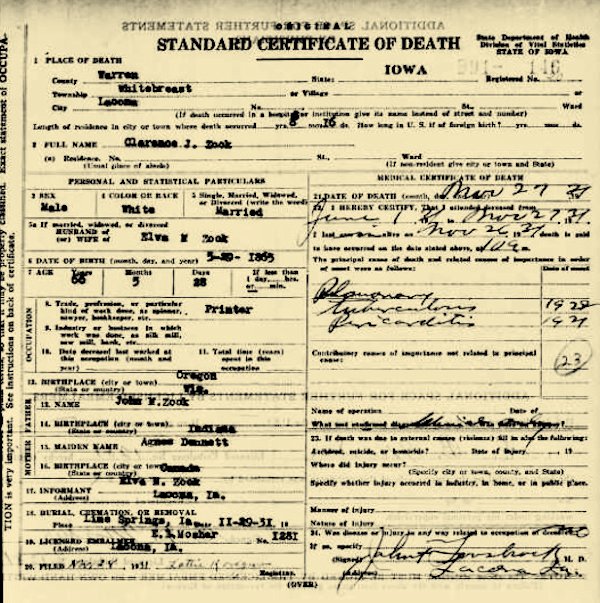 ADDITIONAL SPACE FOR FURTHER STATEMENTS
ORIGINAL
STANDARD CERTIFICATE OF DEATH
State Department of Health
Division of Vital Statistics
STATE OF IOWA
IOWA
1 PLACE OF DEATH
County Warren State: Registered No.
Township Whitebreast or Village
City Lacona No. St. Ward
(If death occurred in a hospital or institution give its name instead of street and number)
Length of residence in city or town where death occurred yrs. 8 mos. 16 ds. How long in U. S. if of foreign birth? yrs. mos. ds.
2 FULL NAME Clarence J. Zook
(a) Residence. No. St., Ward
(Usual place of abode) (If non-resident give city or town and State)
PERSONAL AND STATISTICAL PARTICULARS
3 SEX
Male
4 COLOR OR RACE
White
5 Single, Married, Widowed, or Divorced (write the word)
Married
5a If married, widowed, or divorced
HUSBAND of
(or) WIFE of Elva M Zook
6 DATE OF BIRTH (month, day, and year) 5-29-1865
7 AGE Years Months Days If less than
66 5 28 1 day, hrs.
or min.
OCCUPATION
8. Trade, profession, or particular
kind of work done, as spinner,
sawyer, bookkeeper, etc. Printer
9. Industry or business in which
work was done, as silk mill,
saw mill, bank, etc.
10. Date deceased last worked at
this occupation (month and
year)
11. Total time (years)
spent in this
occupation
12. BIRTHPLACE (city or town) Oregon
(State or country) Wis.
FATHER
13. NAME John M. Zook
14. BIRTHPLACE (city or town)
(State or country) Indiana
MOTHER
15. MAIDEN NAME Agnes Dennett
16. BIRTHPLACE (city or town)
(State or country) Canada
17. INFORMANT Elva M. Zook
(Address) Lacona, Ia.
18. BURIAL, CREMATION, OR REMOVAL
Place Lime Springs, Ia. Date 11-29-31 19
19. LICENSED EMBALMER E.I. Mosher 1281
Lacona, Ia.
20. FILED Nov 28 1931
Registrar.
MEDICAL CERTIFICATE OF DEATH
21 DATE OF DEATH (month, day Nov 27 31
22. I HEREBY CERTIFY, That I attended deceased from
June 1 31, to Nov 27, 31
I last saw alive on Nov 26, 31 death is said
to have occurred on the date stated above, at m.
The principal cause of death and related causes of importance in order
of onset were as follows:
Date of onset
Pulmonary
tuberculosis 1928
Pericarditis 1931
Contributory causes of importance not related to principal
cause:
23
Name of operation Date of
What test confirmed diagnosis?
23. If death was due to external causes (violence) fill in also the following:
Accident, suicide, or homicide? Date of injury 19
Where did injury occur?
(Specify city or town, county, and State)
Specify whether injury occurred in industry, in home, or in public place.
Manner of injury
Nature of injury
24. Was disease or injury in any way related to occupation of deceased?
If so, specify
(Signed) M. D.
(Address) Lacona Ia.
(OVER)
TION is very important. See instructions on back of certificate.
Exact statement of OCCUPA-